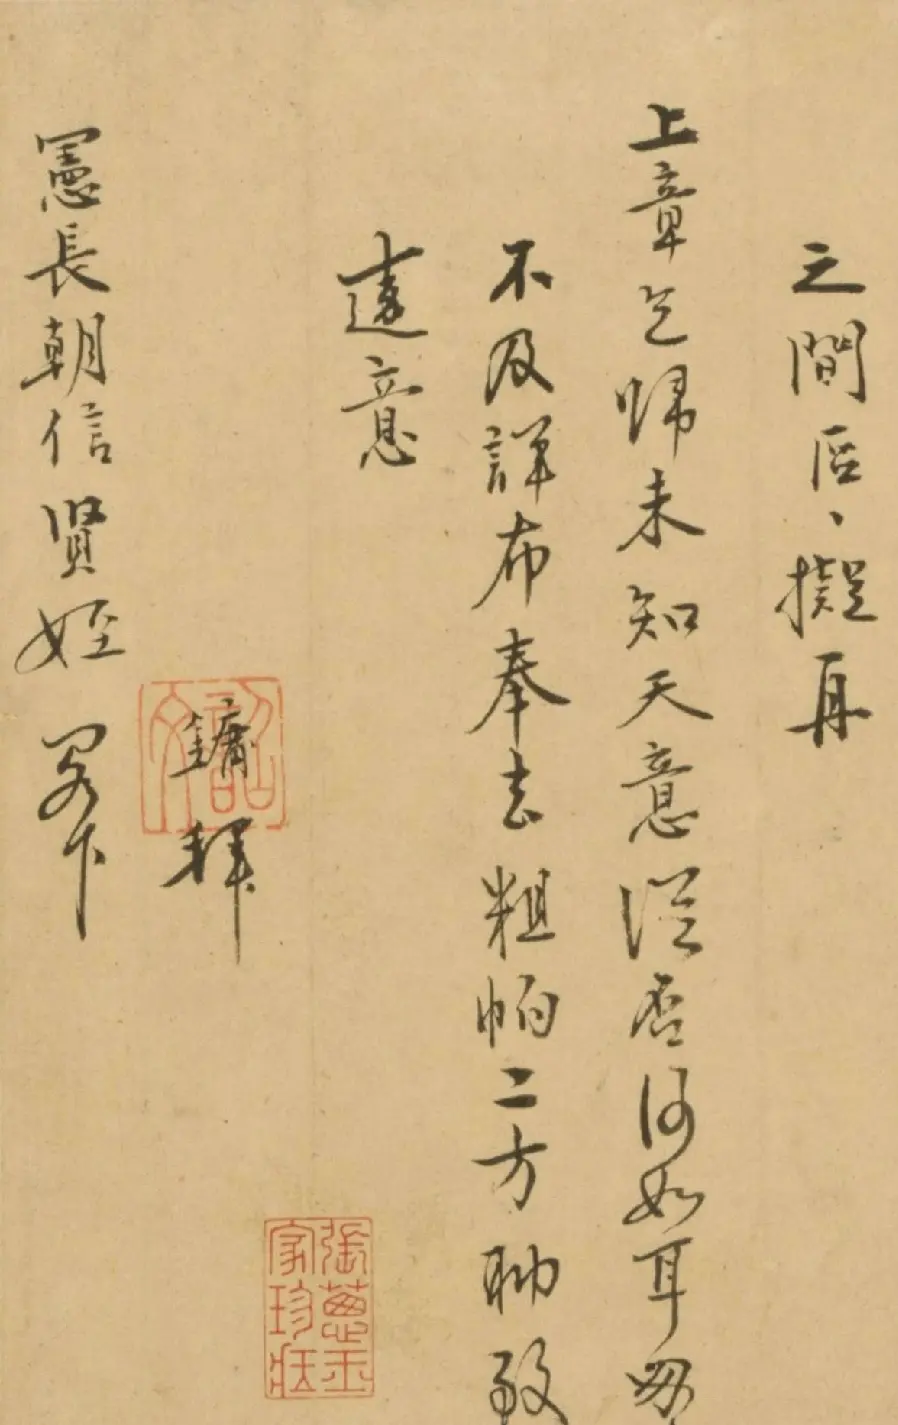 之間區〻擬再
上章乞歸未知天意從否何如耳
不及詳布奉去粗帕二方聊致
遠意
鏞拜
憲長朝信賢姪閣下
張蔥玉
家珍藏